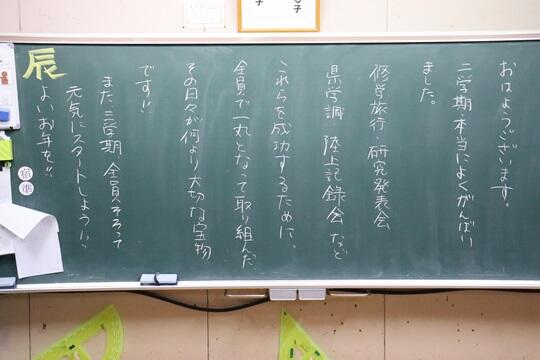 おはようございます。
二学期・本当によくがんばり
ました。
修学旅行・研究発表会
県学調・陸上記録会 など
これらを成功するために、
全員で一丸となって取り組んだ
その日々が何より大切な宝物
です!!
また、三学期 全員そろって
元気にスタートしよう!!
よいお年を!!
辰
宿
準